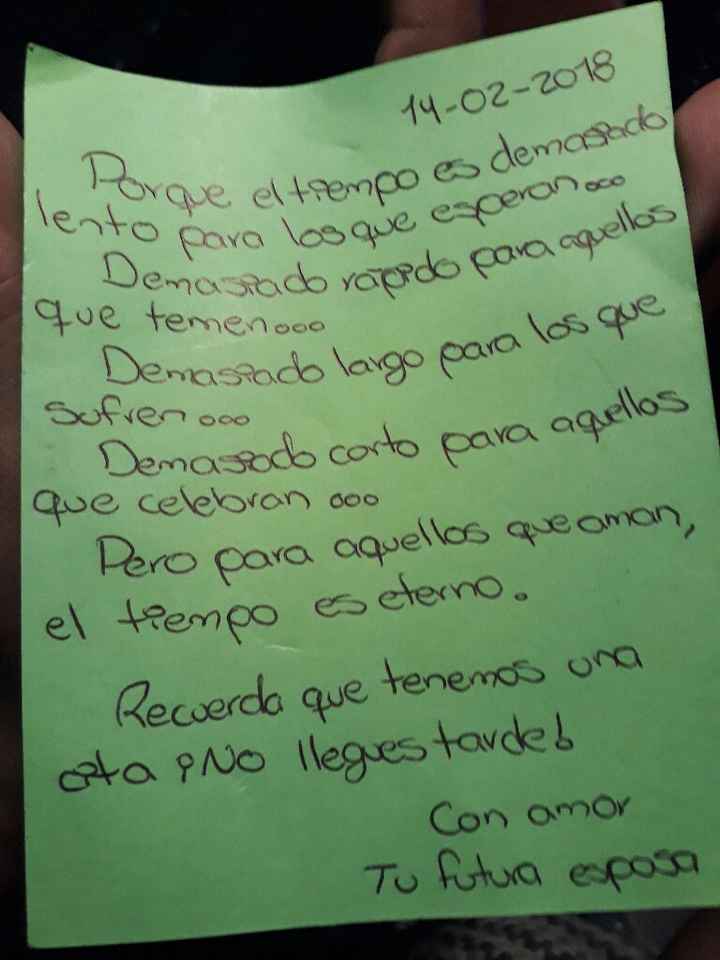 14-02-2018
Porque el tiempo es demasiado
lento para los que esperan...
Demasiado rápido para aquellos
que temen...
Demasiado largo para los que
sufren...
Demasiado corto para aquellos
que celebran...
Pero para aquellos que aman,
el tiempo es eterno.
Recuerda que tenemos una
cita ¡No llegues tarde!
Con amor
Tu futura esposa